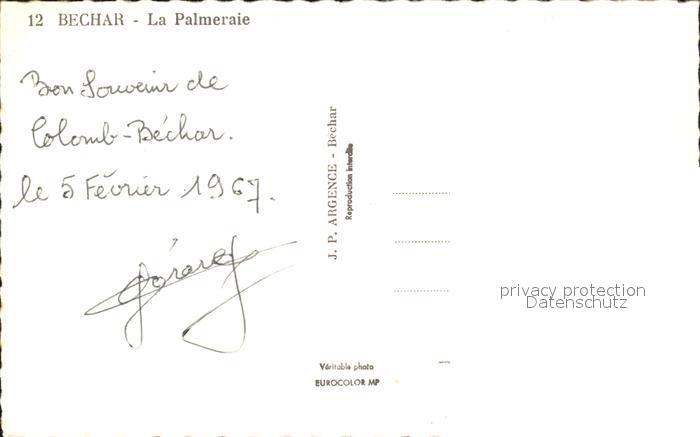 12 BECHAR - La Palmeraie
Bon Souvenir de
Colomb-Béchar.
le 5 Février 1967.
Gérard
J. P. ARGENCE - Bechar
Reproduction interdite
privacy protection
Datenschutz
Véritable photo
EUROCOLOR MP